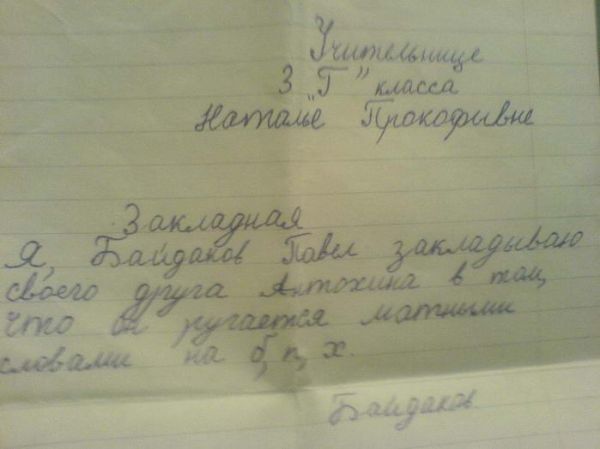 Учительнице
3 "Г" класса
Наталье Прокофивне
Закладная
Я, Байдаков Павел закладываю
своего друга Антохина в том,
что он ругается матными
словами на б, п, х.
Байдаков.